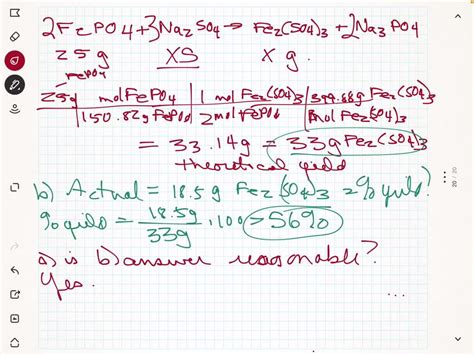 2FePO4+3Na2SO4→ Fe2(SO4)3+2Na3PO4
25g XS X g.
FePO4
25g molFePO4 1 mol Fe2(SO4)3 399.88g Fe2(SO4)3
150.82g FePO4 2molFePO4 1mol Fe2(SO4)3
= 33.14g = 33g Fe2(SO4)3
theoretical yield
b) Actual = 18.5 g Fe2(SO4)3 = % yield?
% yield = 18.5g .100 > 56%
33g
is b) answer reasonable?
Yes.
20 / 20